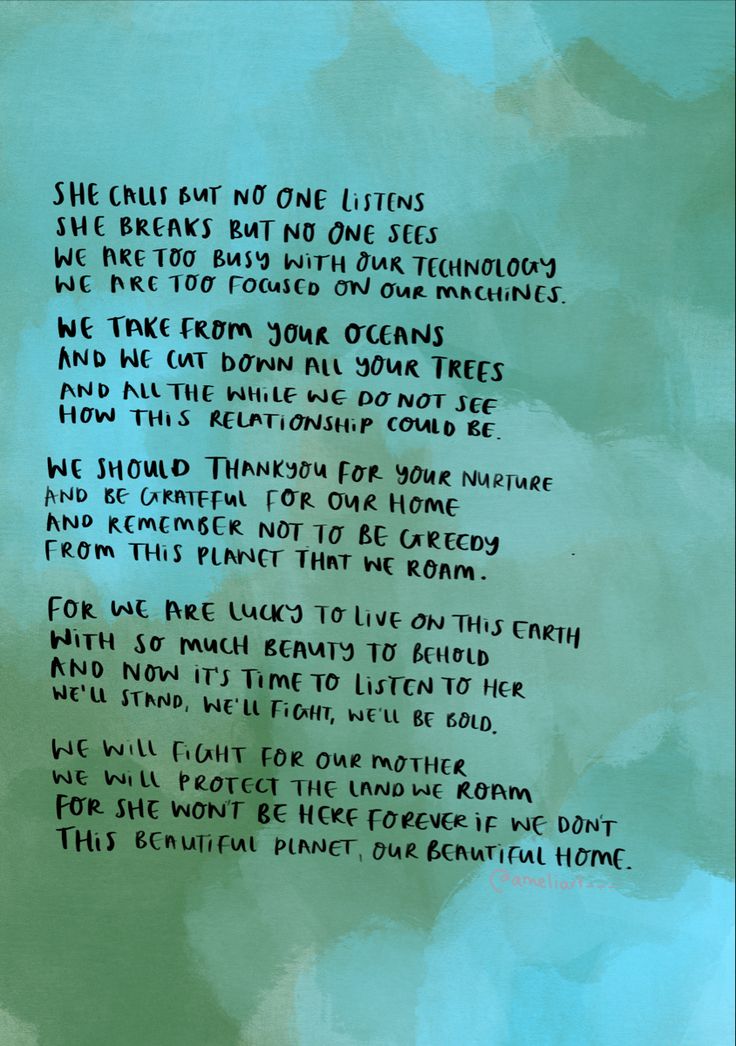 SHE CALLS BUT NO ONE LISTENS
SHE BREAKS BUT NO ONE SEES
WE ARE TOO BUSY WITH OUR TECHNOLOGY
WE ARE TOO FOCUSED ON OUR MACHINES.
WE TAKE FROM YOUR OCEANS
AND WE CUT DOWN ALL YOUR TREES
AND ALL THE WHILE WE DO NOT SEE
HOW THIS RELATIONSHIP COULD BE.
WE SHOULD THANKYOU FOR YOUR NURTURE
AND BE GRATEFUL FOR OUR HOME
AND REMEMBER NOT TO BE GREEDY
FROM THIS PLANET THAT WE ROAM.
FOR WE ARE LUCKY TO LIVE ON THIS EARTH
WITH SO MUCH BEAUTY TO BEHOLD
AND NOW IT'S TIME TO LISTEN TO HER
WE'LL STAND, WE'LL FIGHT, WE'LL BE BOLD.
WE WILL FIGHT FOR OUR MOTHER
WE WILL PROTECT THE LAND WE ROAM
FOR SHE WON'T BE HERE FOREVER IF WE DON'T
THIS BEAUTIFUL PLANET, OUR BEAUTIFUL HOME.